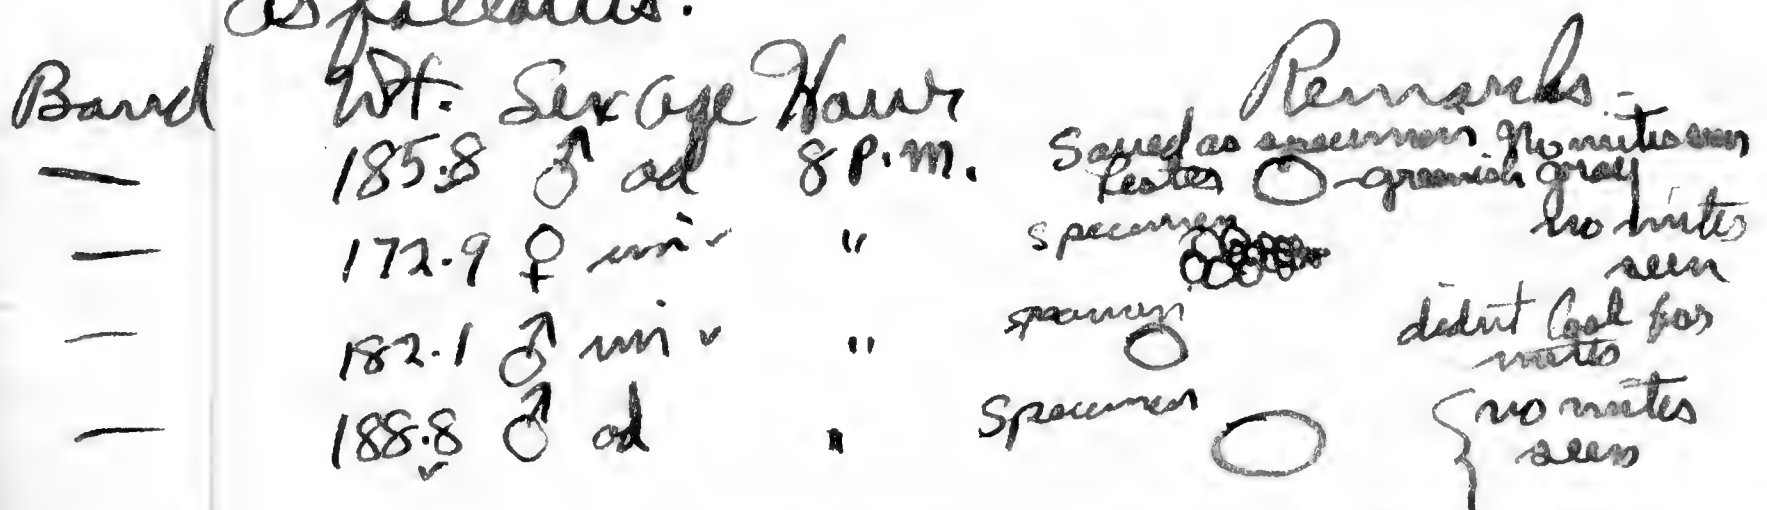 as follows.
Band Wt. Sex Age Hour Remarks
— 185.8 ♂ ad 8 P.M. Saved as specimen No mites seen
testes -greenish gray
— 172.9 ♀ im ✓ " specimen no mites
seen
— 182.1 ♂ im ✓ " specimen didnt look for
mites
— 188.8 ♂ ad " Specimen { no mites
✓ seen